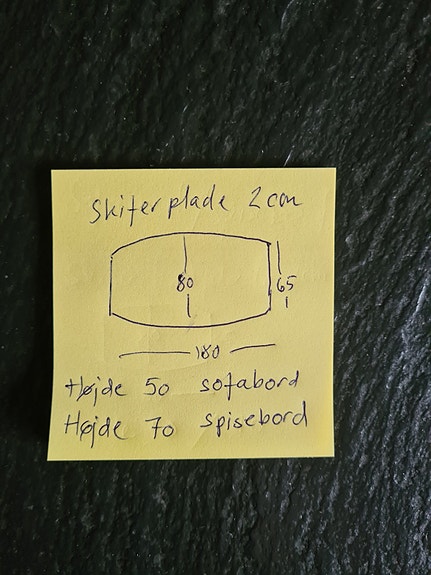 Skiferplade 2 cm
80
65
180
Højde 50 sofabord
Højde 70 spisebord